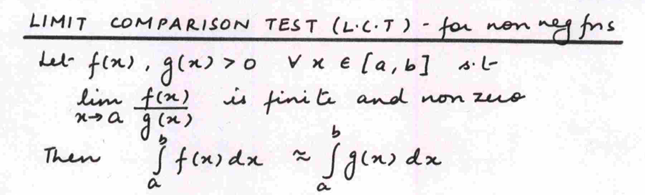 LIMIT COMPARISON TEST (L.C.T) - for non neg fns
Let f(x), g(x) > 0 ∀ x ∈ [a, b] s.t
lim x→a f(x)/g(x) is finite and non zero
Then ∫_a^b f(x) dx ≈ ∫_a^b g(x) dx